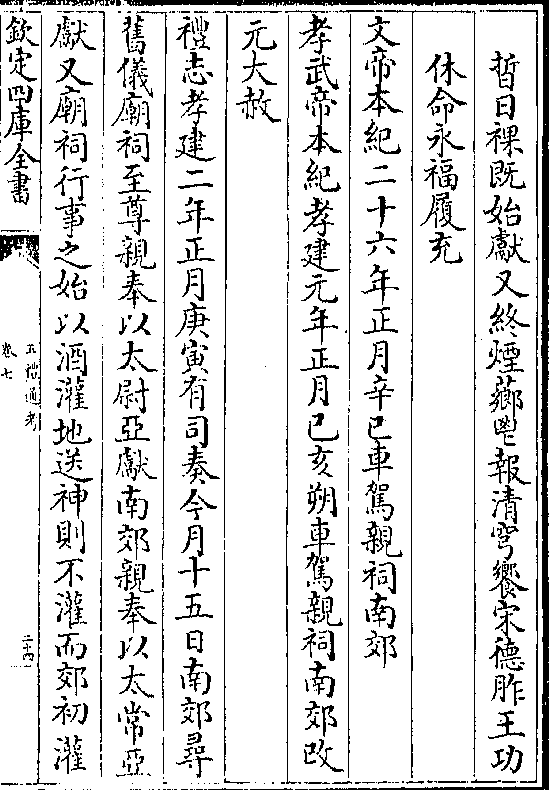 晢日祼既始獻又終煙薌鬯報清穹饗宋德胙王功
休命永福履充
文帝本紀二十六年正月辛巳車駕親祠南郊
孝武帝本紀孝建元年正月己亥朔車駕親祠南郊改
元大赦
禮志孝建二年正月庚寅有司奏今月十五日南郊尋
舊儀廟祠至尊親奉以太尉亞獻南郊親奉以太常亞
獻又廟祠行事之始以酒灌地送神則不灌而郊初灌
欽定四庫全書
五禮通考
卷七
二十四